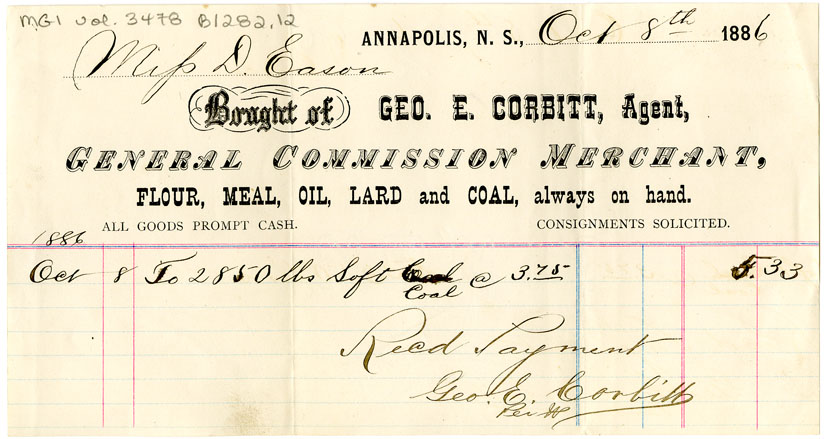 MG1 vol. 3478 B1282.12
ANNAPOLIS, N. S., Oct 8th 1886
Miss D. Eason
Bought of GEO. E. CORBITT, Agent,
GENERAL COMMISSION MERCHANT,
FLOUR, MEAL, OIL, LARD and COAL, always on hand.
ALL GOODS PROMPT CASH. CONSIGNMENTS SOLICITED.
1886
Oct 8 To 2850 lbs Soft Coal @ 3.75 5.33
Recd Payment
Geo. E. Corbitt